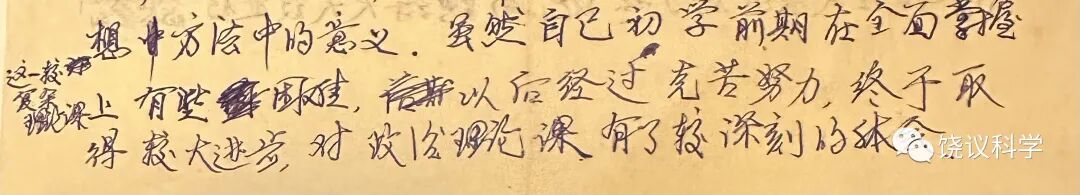 想中方法中的意义。虽然自己初学前期在全面掌握
这一较
复杂
理论课上有些困难,以后经过克苦努力,终于取
得较大进步,对政治理论课有了较深刻的体会。
饶议科学